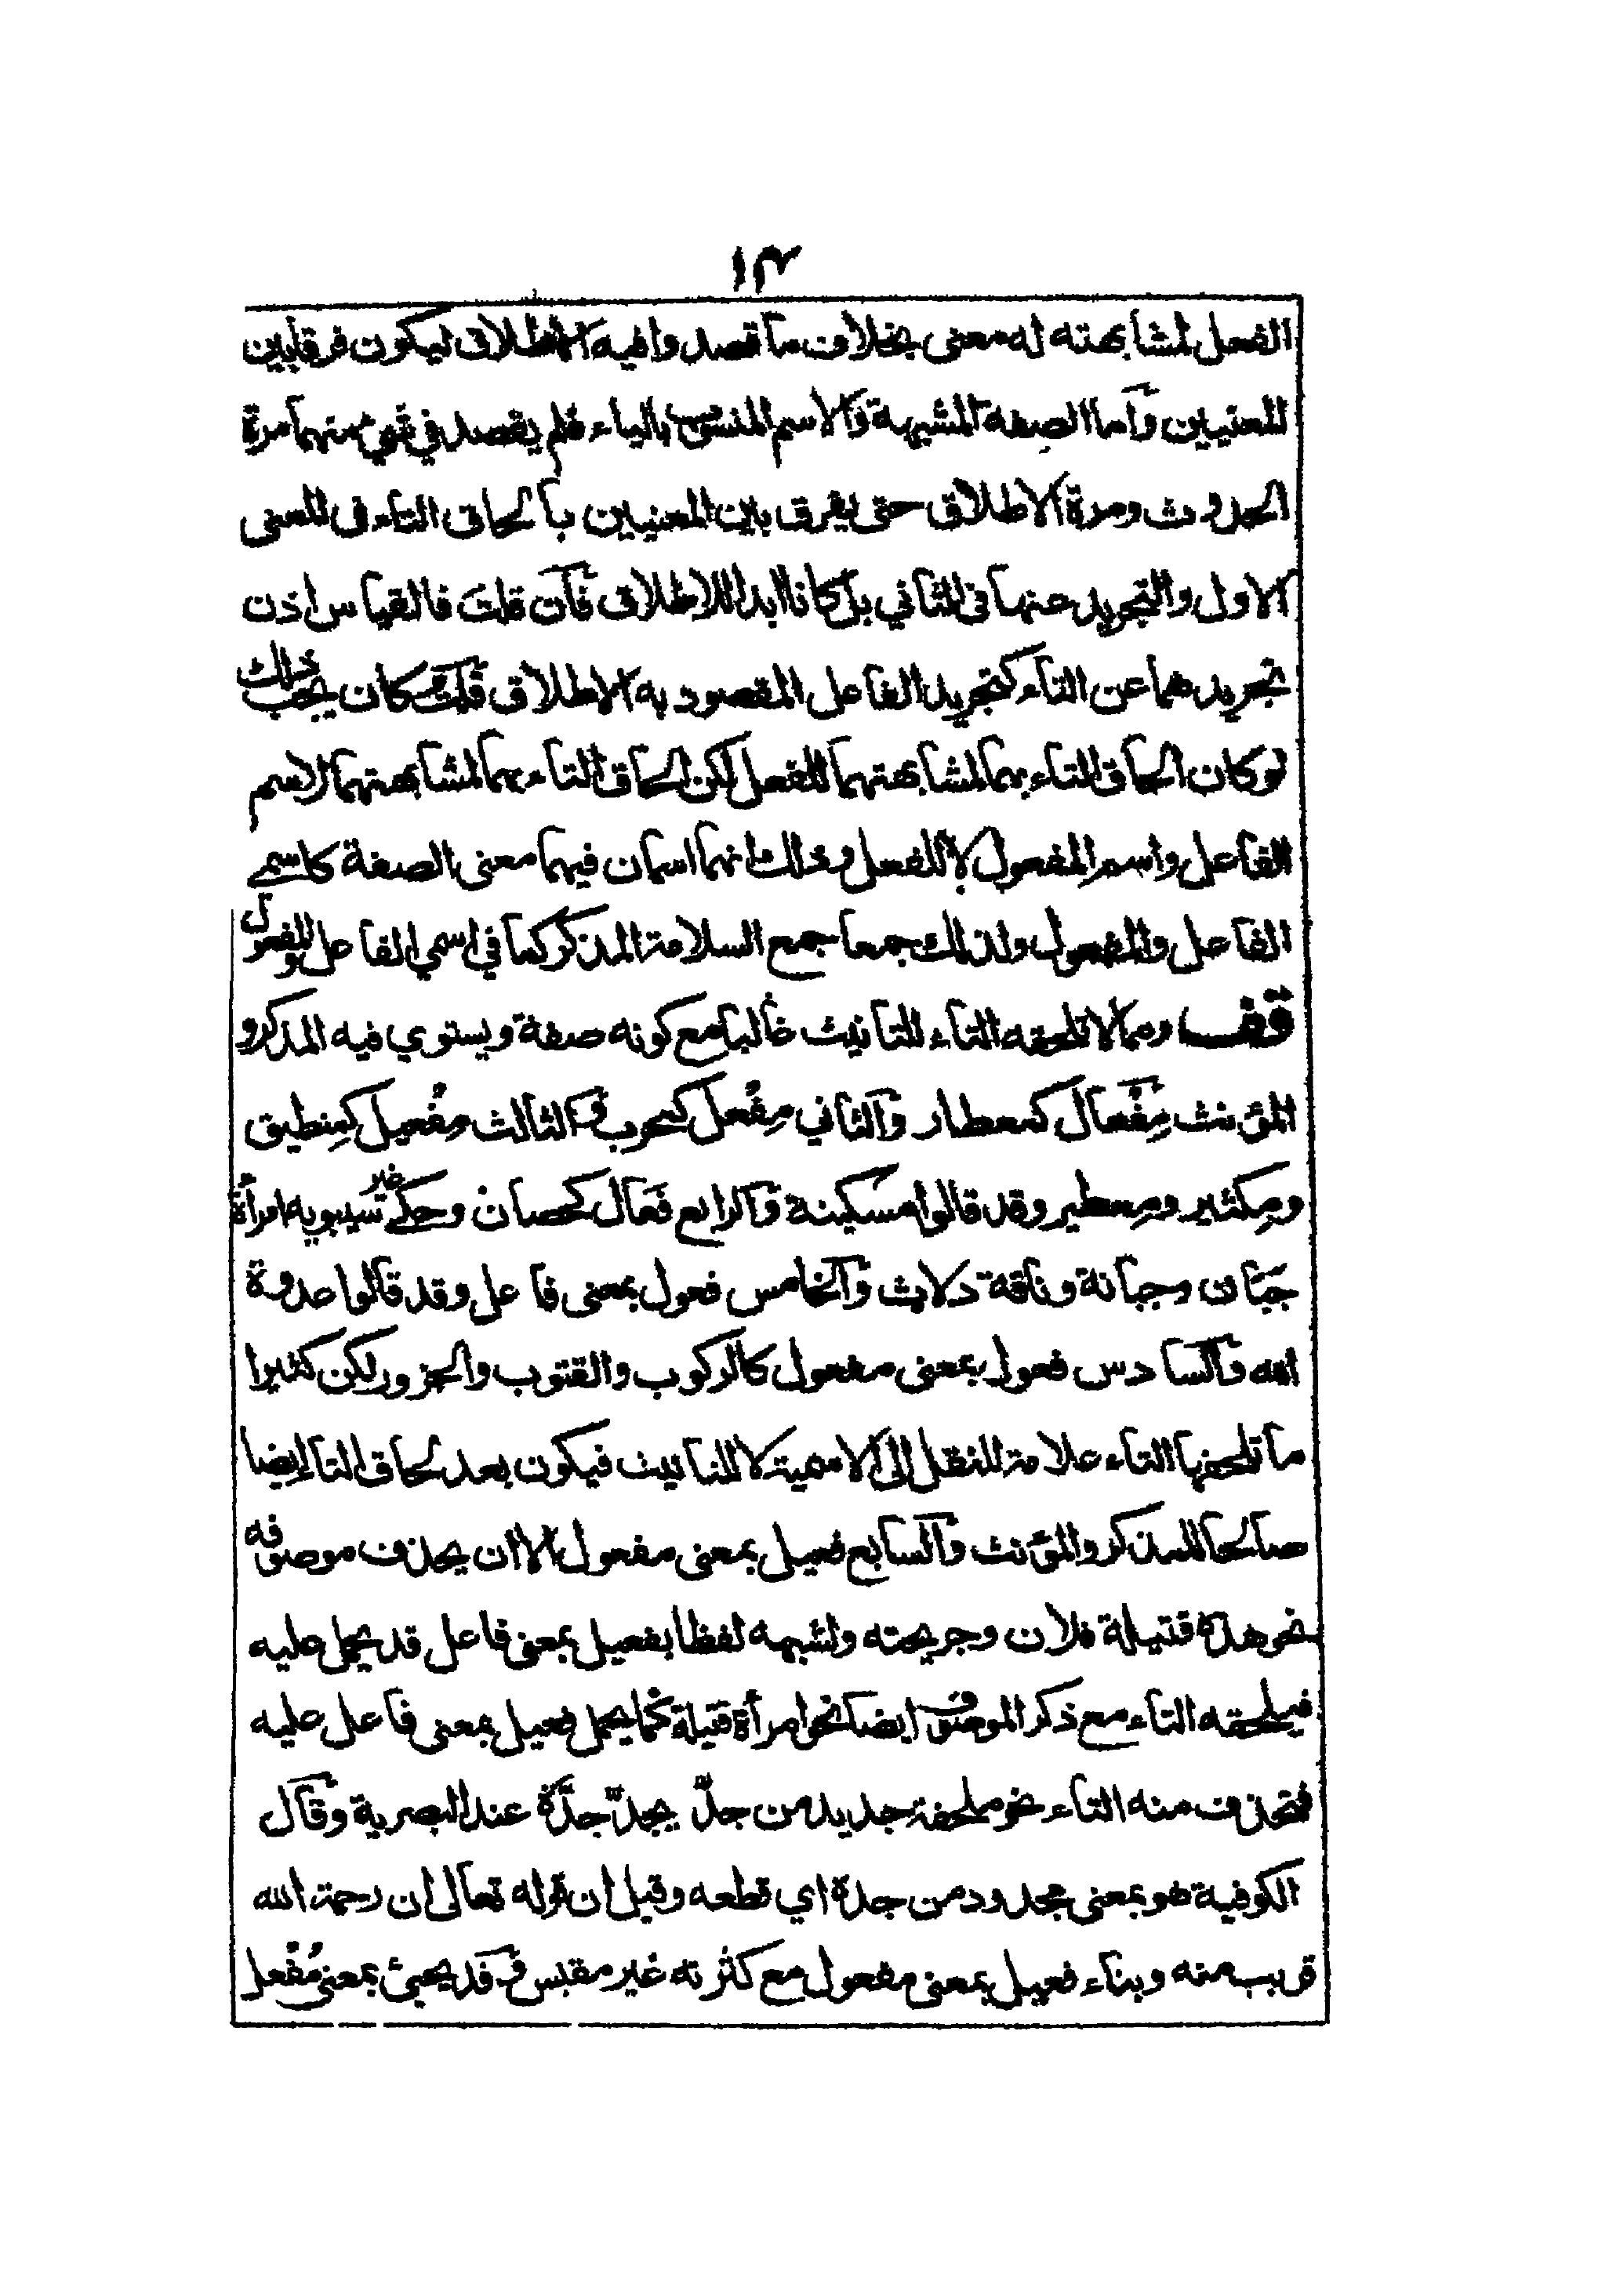 ١٣
الفعل لمشابهته له معنى بخلاف ما قصدوا فيه الاطلاق ليكون فرقا بين
المعنيين واما الصفة المشبهة والاسم المنسوب بالياء فلم يقصد في شيء منهما مرة
الحدوث ومرة الاطلاق حتى يفرق بين المعنيين بالحاق التاء في المعنى
الاول والتجريد عنها في الثاني بل كانا ابدا للاطلاق فان قلت فالقياس اذن
تجريدهما عن التاء كتجريد الفاعل المقصود به الاطلاق قلت كان يجب ذلك
لو كان الحاق التاء بهما لمشابهتهما للفعل لكن الحاق التاء بهما لمشابهتهما لاسم
الفاعل واسم المفعول لا للفعل وذلك انهما اسمان فيهما معنى الصفة كاسمي
الفاعل والمفعول ولذلك جمعا جمع السلامة المذكر كما في اسمي الفاعل والمفعول
قف ومما لا تلحقه التاء للتانيث غالبا مع كونه صفة ويستوي فيه المذكر و
المؤنث مِفْعال كمعطار والثاني مِفْعل كمحرب والثالث مِفْعيل كمِنطيق
ومِكثير ومِعطير وقد قالوا مسكينة والرابع فَعَال كحصان وحكى غير سيبويه امرأة
جَبَان وجبانة وناقة دلاث والخامس فعول بمعنى فاعل وقد قالوا عدوة
الله والسادس فعول بمعنى مفعول كالركوب والقتوب والجزور لكن كثيرا
ما تلحقها التاء علامة للنقل الى الاسمية لا للتانيث فيكون بعد لحاق التاء ايضا
صالحا للمذكر والمؤنث والسابع فعيل بمعنى مفعول الا ان يحذف موصوفه
نحو هذه قتيلة فلان وجريحته ولشبهه لفظا بفعيل بمعنى فاعل قد يحمل عليه
فيلحقه التاء مع ذكر الموصوف ايضا نحو امرأة قتيلة كما يحمل فعيل بمعنى فاعل عليه
فتحذف منه التاء نحو ملحفة جديد من جدّ يجدّ جدّة عند البصرية وقال
الكوفية هو بمعنى مجدود من جده اي قطعه وقيل ان قوله تعالى ان رحمة الله
قريب منه وبناء فعيل بمعنى مفعول مع كثرته غير مقيس وقد يجيئ بمعنى مُفْعل